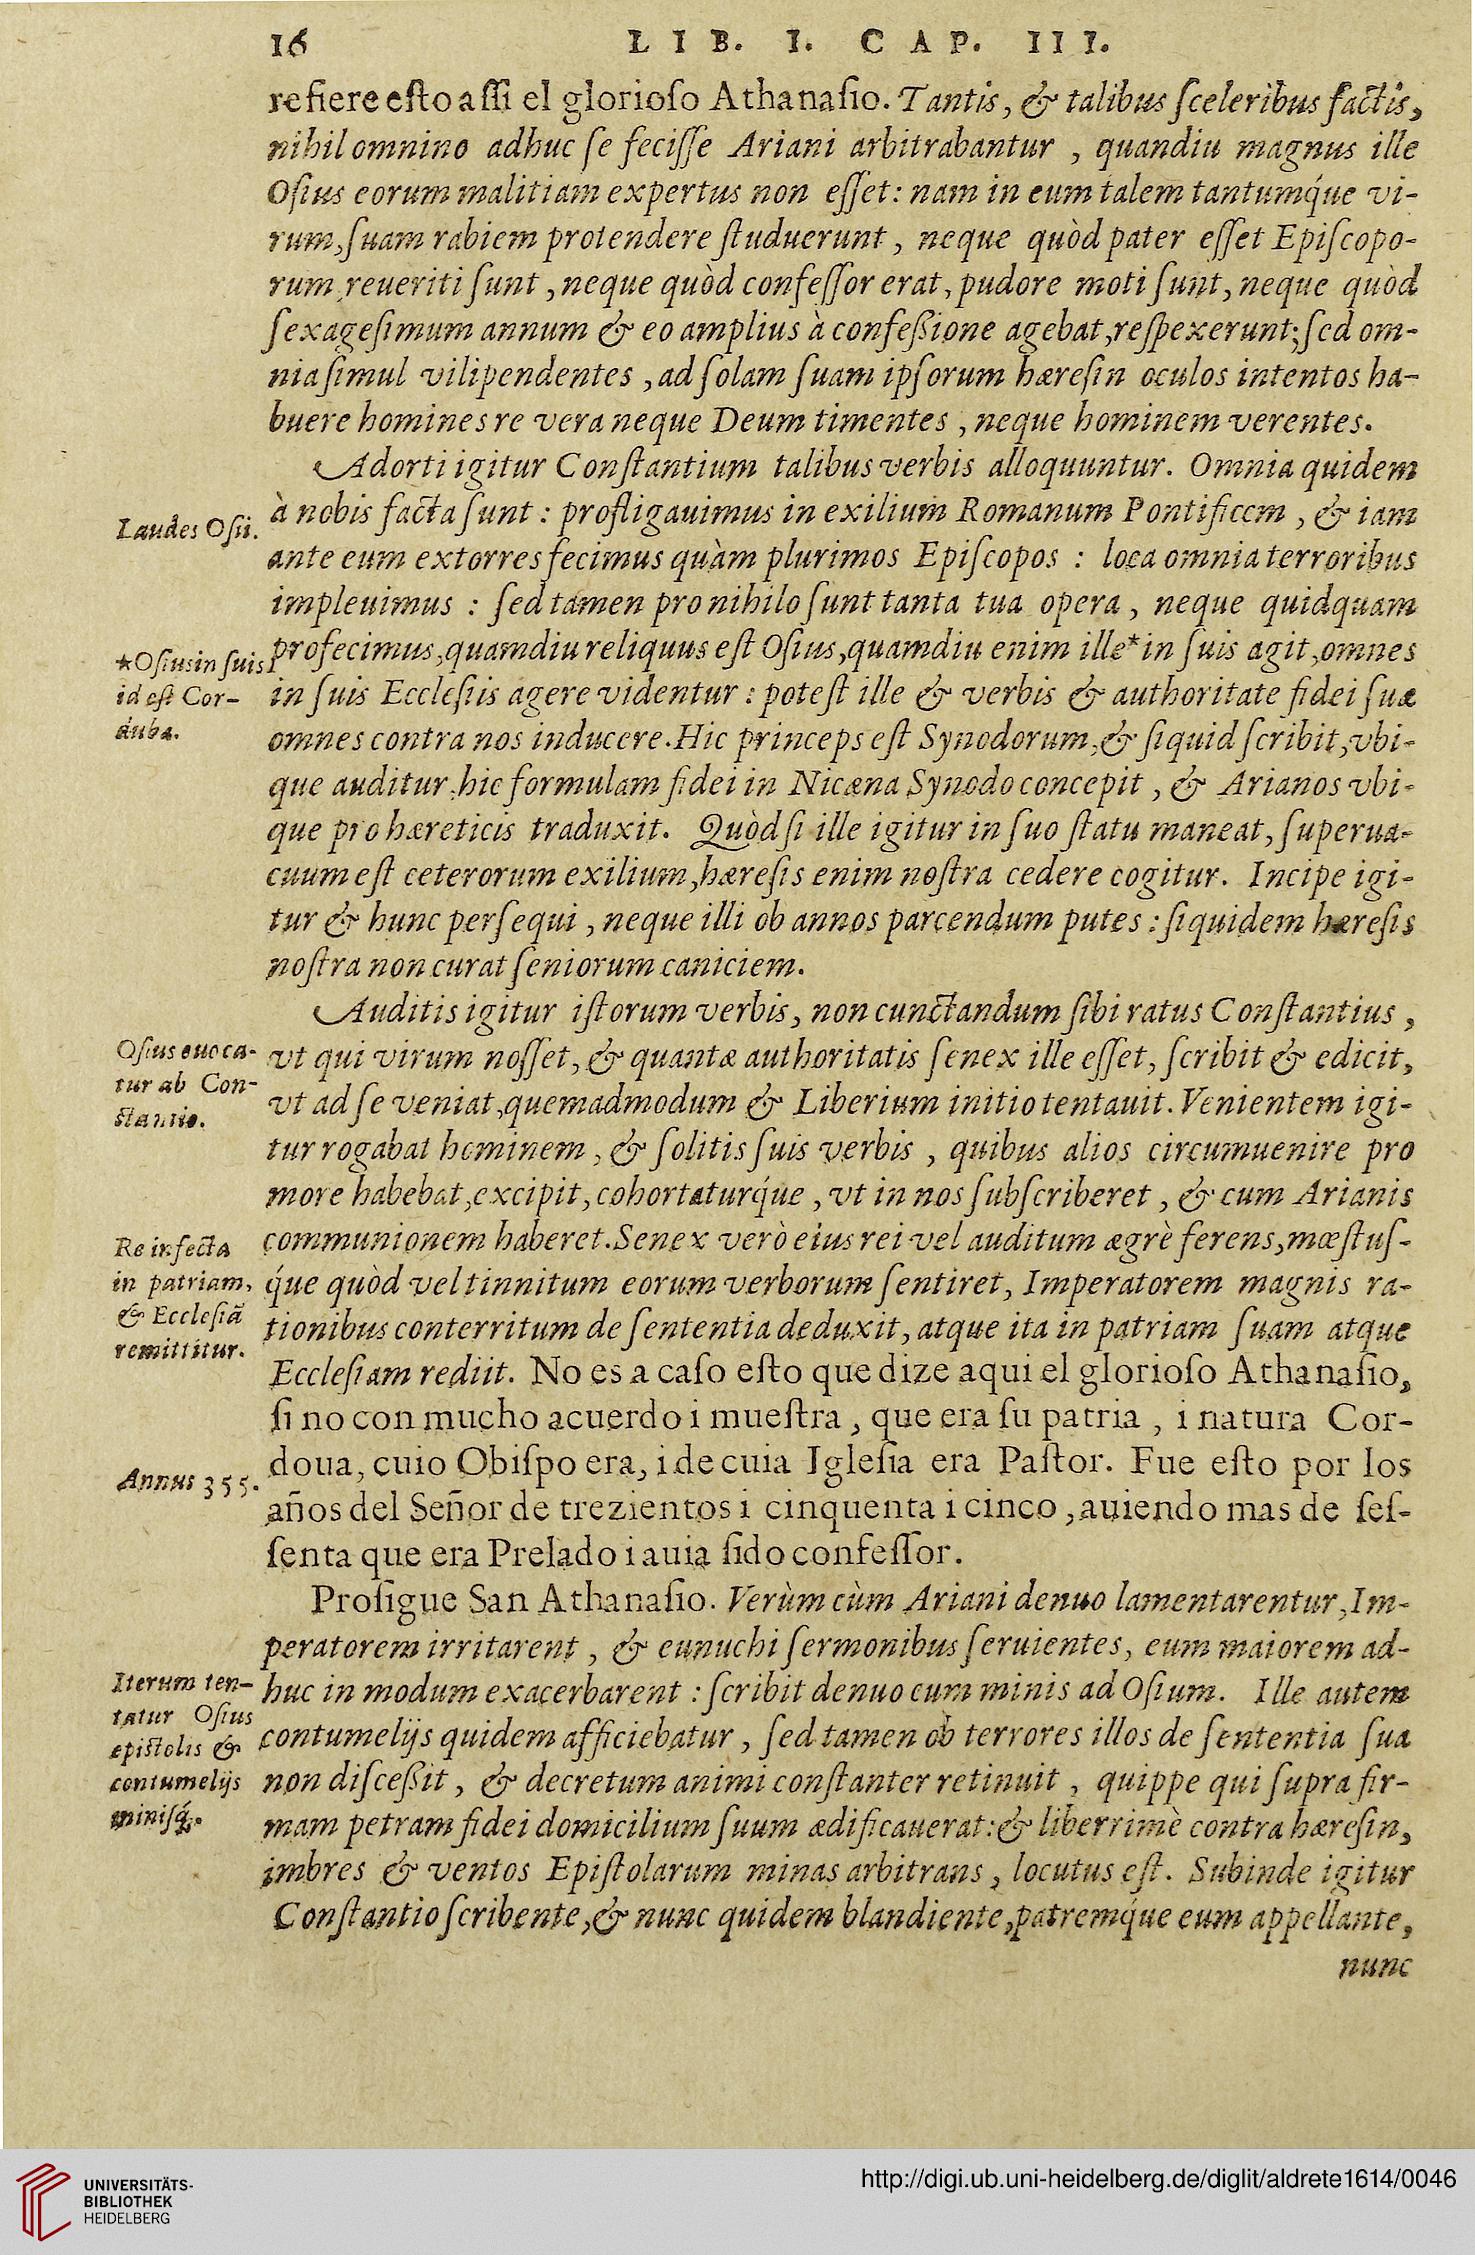 16 LIB. I. CAP. III.
refiere esto assi el glorioso Athanasio. Tantis, & talibus sceleribus factis,
nihil omnino adhuc se fecisse Ariani arbitrabantur, quandiu magnus ille
Osius eorum malitiam expertus non esset: nam in eum talem tantumq́ue vi-
rum, suam rabiem protendere studuerunt, neque quòd pater esset Episcopo-
rum reueriti sunt, neque quòd confessor erat, pudore moti sunt, neque quòd
sexagesimum annum & eo amplius à confeßione agebat, respexerunt; sed om-
nia simul vilipendentes, ad solam suam ipsorum hæresin oculos intentos ha-
buere homines re vera neque Deum timentes, neque hominem verentes.
Adorti igitur Constantium talibus verbis alloquuntur. Omnia quidem
Laudes Osii.
à nobis facta sunt: profligauimus in exilium Romanum Pontificem, & iam
ante eum extorres fecimus quàm plurimos Episcopos: loca omnia terroribus
impleuimus: sed tamen pro nihilo sunt tanta tua opera, neque quidquam
*Osius in suis
id est Cor-
duba.
profecimus, quamdiu reliquus est Osius, quamdiu enim ille* in suis agit, omnes
in suis Ecclesiis agere videntur: potest ille & verbis & authoritate fidei suæ
omnes contra nos inducere. Hic princeps est Synodorum, & siquid scribit, vbi-
que auditur, hic formulam fidei in Nicæna Synodo concepit, & Arianos vbi-
que pro hæreticis traduxit. Quòd si ille igitur in suo statu maneat, superua-
cuum est ceterorum exilium, hæresis enim nostra cedere cogitur. Incipe igi-
tur & hunc persequi, neque illi ob annos parcendum putes: siquidem hæresis
nostra non curat seniorum caniciem.
Auditis igitur istorum verbis, non cunctandum sibi ratus Constantius,
Osius euoca-
tur ab Con-
stantio.
vt qui virum nosset, & quantæ authoritatis senex ille esset, scribit & edicit,
vt ad se veniat, quemadmodum & Liberium initio tentauit. Venientem igi-
tur rogabat hominem, & solitis suis verbis, quibus alios circumuenire pro
more habebat, excipit, cohortaturq́ue, vt in nos subscriberet, & cum Arianis
Re infecta
in patriam,
& Ecclesiã
remittitur.
communionem haberet. Senex verò eius rei vel auditum ægrè ferens, mœstus-
q́ue quòd vel tinnitum eorum verborum sentiret, Imperatorem magnis ra-
tionibus conterritum de sententia deduxit, atque ita in patriam suam atque
Ecclesiam rediit. No es a caso esto que dize aqui el glorioso Athanasio,
si no con mucho acuerdo i muestra, que era su patria, i natura Cor-
Annus 355.
doua, cuio Obispo era, i de cuia Iglesia era Pastor. Fue esto por los
años del Señor de trezientos i cinquenta i cinco, auiendo mas de ses-
senta que era Prelado i auia sido confessor.
Prosigue San Athanasio. Verùm cùm Ariani denuo lamentarentur, Im-
peratorem irritarent, & eunuchi sermonibus seruientes, eum maiorem ad-
Iterum ten-
tatur Osius
epistolis &
contumelijs
minisq́;.
huc in modum exacerbarent: scribit denuo cum minis ad Osium. Ille autem
contumelijs quidem afficiebatur, sed tamen ob terrores illos de sententia sua
non disceßit, & decretum animi constanter retinuit, quippe qui supra fir-
mam petram fidei domicilium suum ædificauerat: & liberrimè contra hæresin,
imbres & ventos Epistolarum minas arbitrans, locutus est. Subinde igitur
Constantio scribente, & nunc quidem blandiente, patremq́ue eum appellante,
nunc
UNIVERSITÄTS-
BIBLIOTHEK
HEIDELBERG
http://digi.ub.uni-heidelberg.de/diglit/aldrete1614/0046